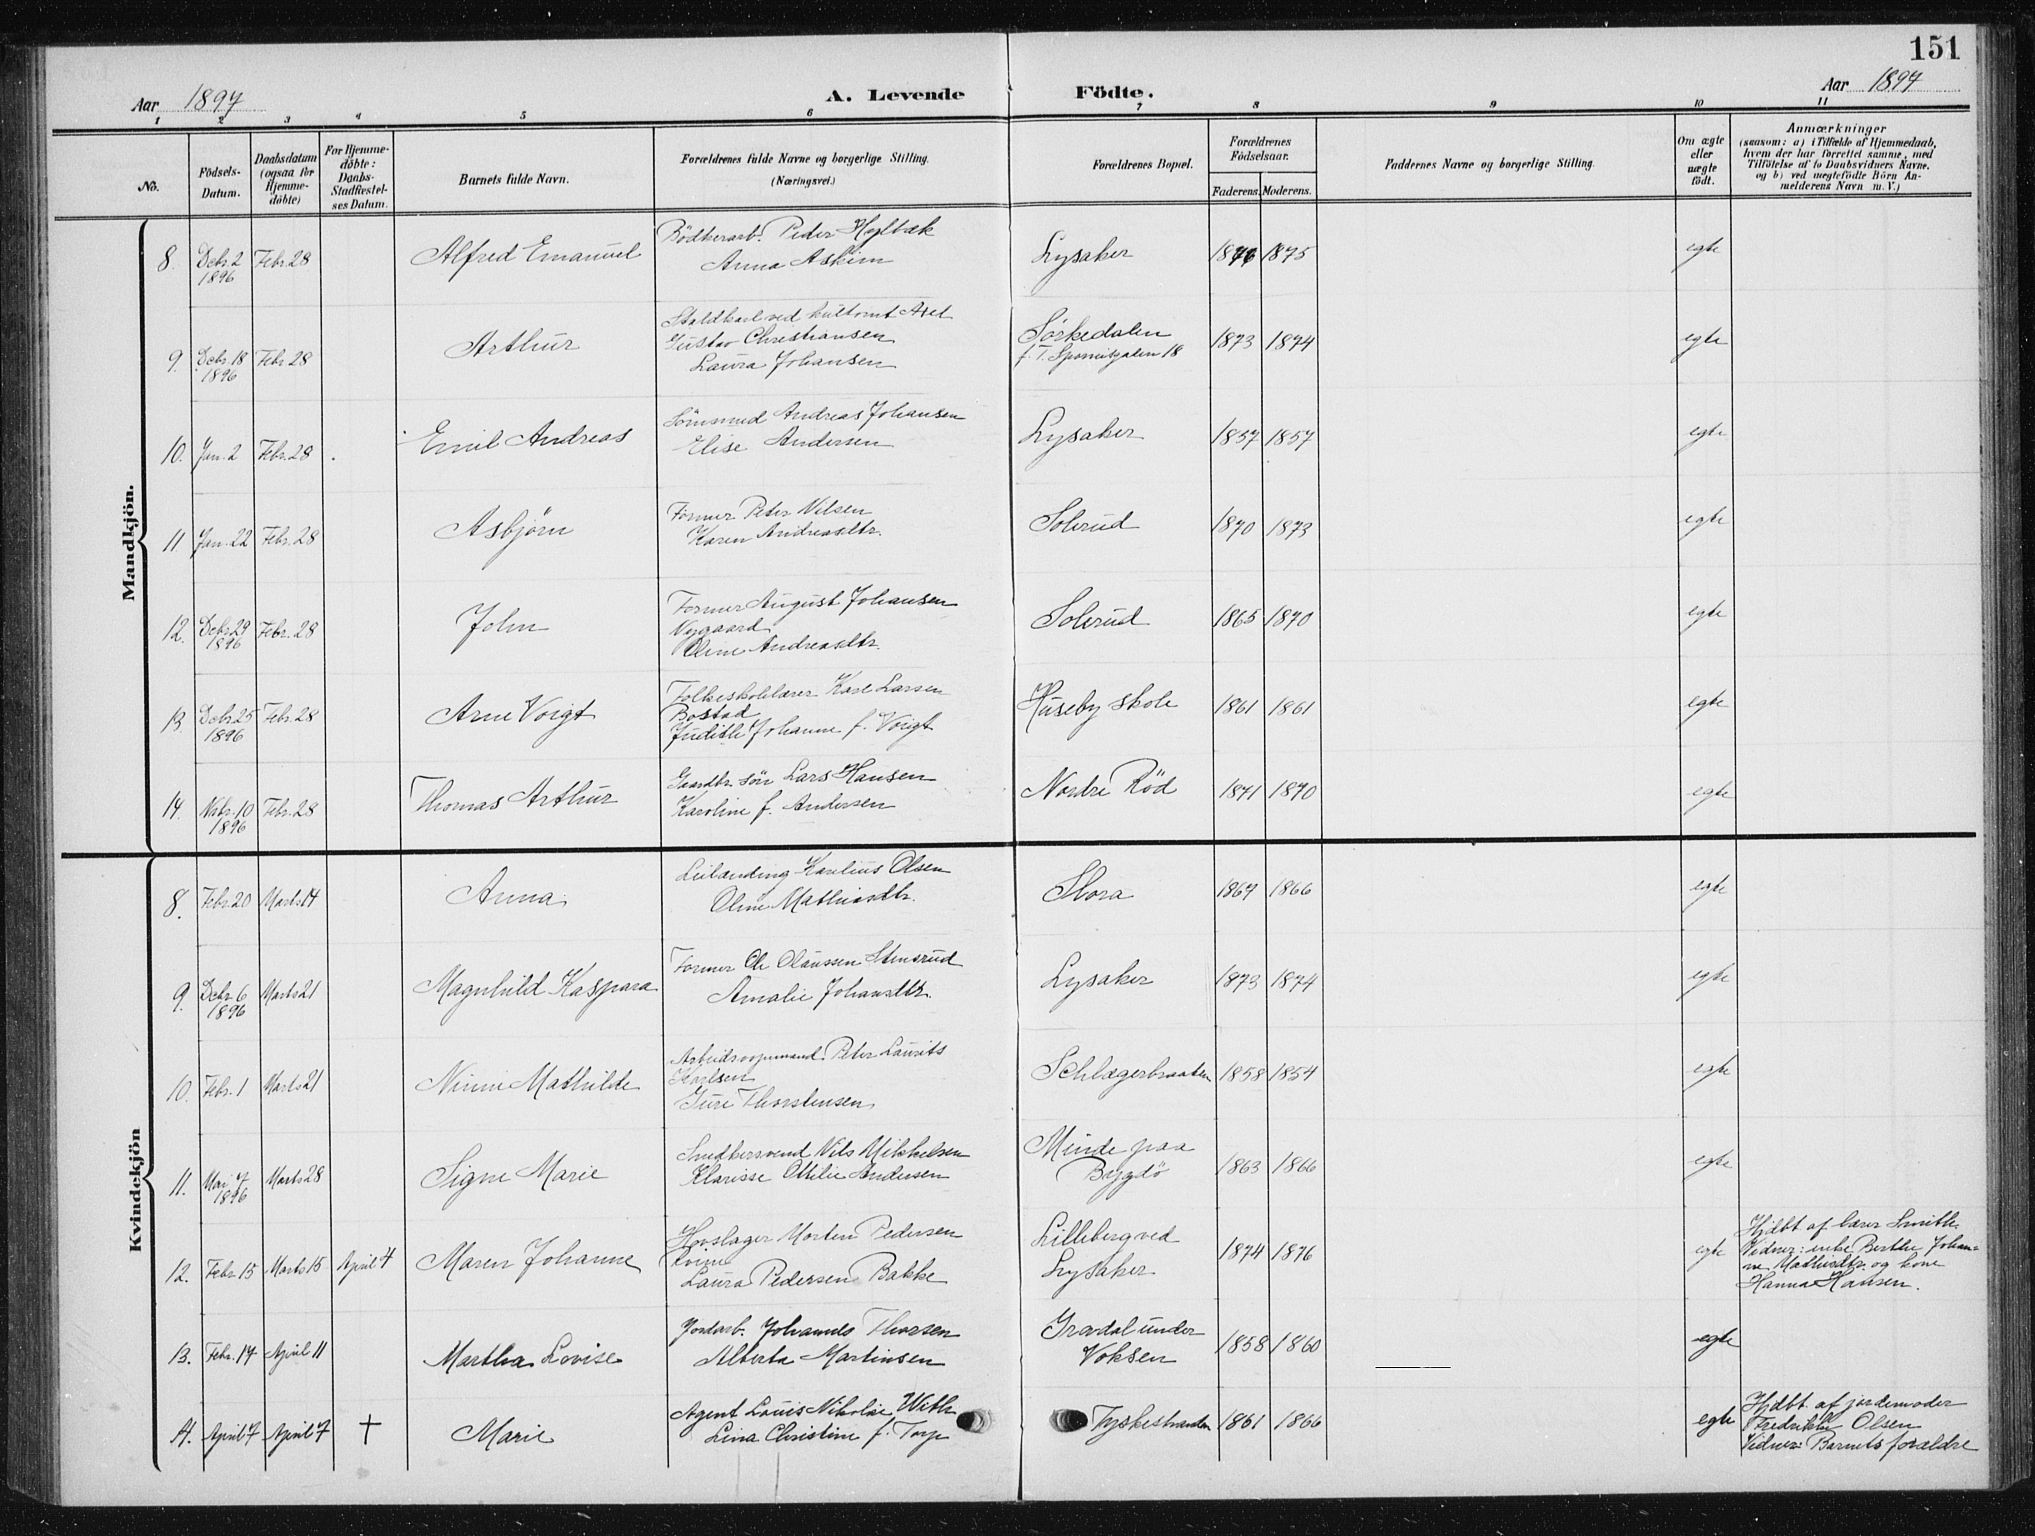 151
Aar 1897
A. Levende Födte.
Aar 1897
1 2 3 4 5 6 7 8 9 10 11
No.
Födsels-
Datum.
Daabsdatum
(ogsaa for
Hjemme-
döbte)
For Hjemme-
döbte:
Daabs-
Stadfæstel-
ses Datum.
Barnets fulde Navn.
Forældrenes fulde Navne og borgerlige Stilling.
(Næringsvei.)
Forældrenes Bopæl.
Forældrenes
Födselsaar.
Faderens. Moderens.
Faddernes Navne og borgerlige Stilling.
Om ægte
eller
uægte
födt.
Anmærkninger
(saasom: a) i Tilfælde af Hjemmedaab,
hvem der har forrettet samme, med
Tilföielse af to Daabsvidners Navne.
og b) ved uægtefödte Börn An-
melderens Navn m. V.)
Mandkjön.
8. Debr. 2 1896 Febr. 28 Alfred Emanuel
Bödkerarb. Peder Heglbak
Anna Askim
Lysaker 1875 egte
9. Debr. 18 1896 Febr. 28 Arthur
Staldkarl ved Axel
Gustav Christiansen
Laura Johansen
Sørkedalen
f. T. 18
1873 1874 egte
10. Jan. 2 Febr. 28 Emil Andreas
Sömsmed Andreas Johansen
Elise Andersen
Lysaker 1857 1857 egte
11 Jan. 22 Febr. 28 Asbjörn
Former Peter Nilsen
Karen Andreasdtr.
Solerud 1870 1873 egte
12. Debr. 29 1896 Febr. 28 John
Former August Johansen
Nygaard
Oline Andreasdtr.
Solerud 1865 1870 egte
13. Debr. 25 1896 Febr. 28 Arne Voigt
Folkeskolelærer Karl Larsen
Bostad
Judith Johanne f. Voigt
Huseby skole 1861 1861 egte
14. Nvbr. 10 1896 Febr. 28 Thomas Arthur
Gaardbr. sön Lars Hansen
Karoline f. Andersen
Nordre Röd 1871 1870 egte
Kvindekjön
8. Febr. 20 Marts 14 Anna
Leilænding Karelius Olsen
Oline Mathiasdtr.
Slora 1867 1866 egte
9. Debr. 6 1896 Marts 21 Magnhild Kaspara
Former Ole Olaussen Stensrud
Amalie Johansdtr.
Lysaker 1873 1874 egte
10. Febr. 1 Marts 21 Ninni Mathilde
Arbeidsopsmand Peter Laurits
Karlsen
Guri Thorstensen
Schlægerbraaten 1858 1854 egte
11. Mai 7 1896 Marts 28 Signe Marie
Smedkersvend Nils Mikkelsen
Klarisse Ottilie Andersen
Minde paa
Bygdö
1863 1866 egte
12. Febr. 15 Marts 15 April 4 Maren Johanne
Hovslager Morten Pedersen
Laura Pedersen Bakke
Lilleberg ved
Lysaker
1874 1876 egte
Hjdbt af lærer Smith.
Vidner: enke Berthe Johan-
ne Mathisdtr. og kone
Hanna Hansen.
13. Febr. 14 April 11 Martha Lovise
Jordarb. Johannes Thorsen
Alberta Martinsen
Gravdal under
Voksen
1858 1860 egte
14. April 7 April 7 † Marie
Agent Louis Nikolai With
Lina Christine f. Torp
Tyskestranden 1861 1866 egte
Hjdbt af jordemoder
Fredrikke Olsen
Vidner: Barnets forældre